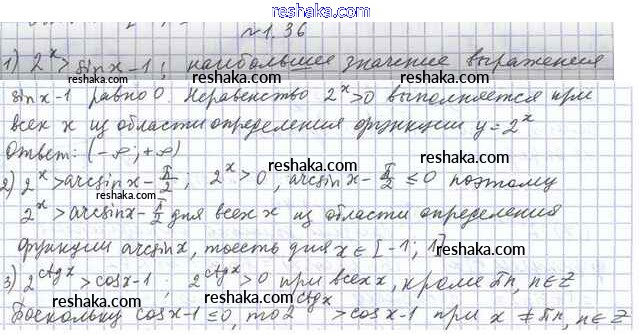 reshaka.com
№1.36
1) 2^x > sin x - 1; наибольшее значение выражения
reshaka.com reshaka.com reshaka.com
sin x - 1 равно 0. Неравенство 2^x > 0 выполняется при
всех x из области определения функции y = 2^x
reshaka.com
Ответ: (-∞; +∞)
reshaka.com reshaka.com
2) 2^x > arcsin x - π/2; 2^x > 0, arcsin x - π/2 ≤ 0 поэтому
reshaka.com
2^x > arcsin x - π/2 для всех x из области определения
reshaka.com reshaka.com
функции arcsin x, то есть для x ∈ [-1; 1]
reshaka.com
3) 2^ctg x > cos x - 1; 2^ctg x > 0 при всех x, кроме πn, n ∈ Z
reshaka.com reshaka.com
Поскольку cos x - 1 ≤ 0, то 2^ctg x > cos x - 1 при x ≠ πn, n ∈ Z
reshaka.com